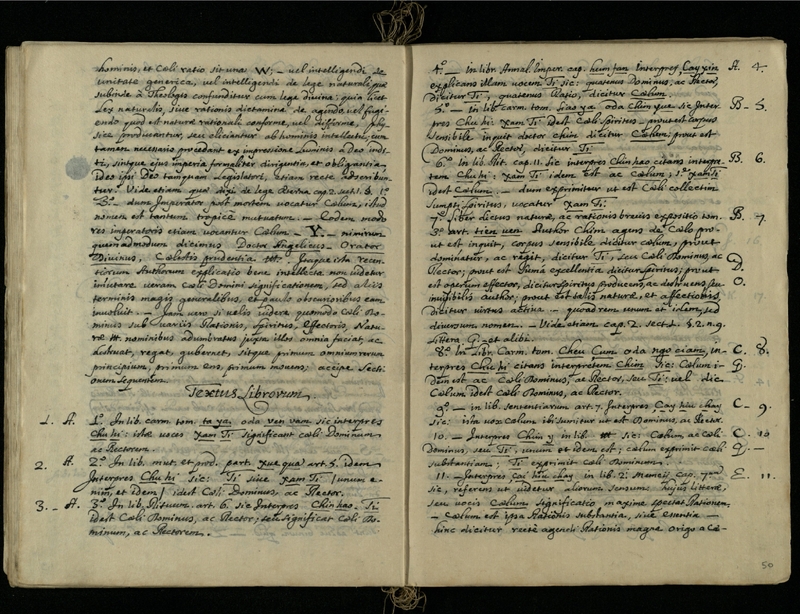 hominis, et Cœli ratio sit una W; – vel intelligendi de
unitate generica, vel intelligendi de lege naturali, quæ
subinde a Theologis confunditur cum lege divina: quia licet
Lex naturalis, sive rationis dictamina de agendo, vel fugi-
endo quod est naturæ rationali conforme, vel difforme, phy-
sice producantur, seu eliciantur ab hominis intellectu, cum
tamen necessario procedant ex impressione Luminis a Deo indi-
ti, sintque ejus imperia formaliter dirigentia, et obligantia
ideo ipsi Deo tanquam Legislatori, etiam recte adscribun-
tur. Vide etiam quæ dixi de lege æterna cap. 2. sect. 1. §. 1.
dum Imperator post mortem vocatur Cœlum, istud
nomen est tantum tropice mutuatum. – Eodem modo
res imperatoris etiam vocantur Cœlum – Y. – nimirum
quemadmodum dicimus Doctor Angelicus – Orator
Divinus, Cœlestis prudentia Itaque ista recen-
tiorum Authorum explicatio bene intellecta non videtur
immutare veram Cœli Domini significationem, sed aliis
terminis magis generalibus, et paulo obscurioribus eam
involvit. – Jam vero si velis videre quomodo Cœli Do-
minus sub variis Rationis, Spiritus, Effectoris, Natu-
ræ nominibus adumbratus juxta illos omnia faciat, ac
destruat, regat, gubernet, sitque primum omnium rerum
principium, primum ens, primum movens; accipe Secti-
onem Sequentem.
Textus Librorum
1. A. 1º. In lib. carm. tom. ta ya, oda ven vam sic interpres
Chu hi: istæ voces Xam Ti significant Cœli Dominum
ac Rectorem.
2. A. 2º. In lib. mut. et prod. part. xue qua art. 5. idem
Interpres Chu hi sic: Ti sive Xam Ti / unum e-
nim, et idem / idest Cœli Dominus, ac Rector.
3. – A. 3º. In lib. Rituum. art. 6. sic Interpres Chin hao. Ti
idest Cœli Dominus, ac Rector; seu significat Cœli Do-
minum, ac Rectorem.
4º. – In libr. Annal. Imper. cap. hum fan Interpres Cay xin A. 4.
explicans illam vocem Ti sic: quatenus Dominus, ac Rector,
dicitur Ti; quatenus Ratio, dicitur Cœlum.
5º. – In lib. carm. tom. Siao ya oda Chim yue sic Inter- B – 5.
pres Chu hi Xam Ti idest Cœli Spiritus – prout est corpus
sensibile inquit doctor chim dicitur Cœlum; prout est
Dominus, ac Rector, dicitur Ti
6º. In lib. Rit. cap. 11. sic interpres Chin hao citans interpre- B. 6.
tem Chu hi: Xam Ti idem est ac Cœlum;
idest Cœlum: – dum exprimitur ut est Cœli collectim
sumpti Spiritus, vocatur Xam Ti.
7º. Liber dictus naturæ, ac rationis brevis expositio tom. B. 7.
3º. art. tien ven Author Chim agens de Cœlo pro-
ut est inquit, corpus sensibile dicitur cœlum, prout
dominatur, ac regit, dicitur Ti, seu Cœli Dominus, ac
Rector; prout est summa excellentia dicitur Spiritus; prout D.
est operum effector, dicitur Spiritus producens, ac destruens seu O.
invisibilis author; prout est talis naturæ, et affectionis,
dicitur virtus activa – quoad rem unum et idem, sed
diversum nomen. – Vide etiam cap. 2. sect. 1. §. 2. n. 9.
littera G. – et alibi.
8º. In Libr. Carm. tom. Cheu Cum oda ngo ciam, in- C. 8.
terpres Chu hi citans interpretem Chim sic: Cœlum i- D.
dem est ac Cœli Dominus, ac Rector, seu Ti: vel sic
Cœlum idest Cœli Dominus, ac Rector.
9º. – in lib. sententiarum art. 7. Interpres Cay hiu chay C – 9.
sic: vox Cœlum ibi sumitur ut est Dominus, ac Rector.
10. – Interpres Chin y in lib. sic: Cœlum, ac Cœli C. 10
Dominus, seu Ti, unum et idem est; cœlum exprimit cœli
substantiam; Ti exprimit Cœli Dominum.
11 – Interpres cai hiu chay in lib. 2. Memcii cap. 7mo E. 11.
sic, referens ut videtur aliorum sensum hujus litteræ,
seu vocis Cœlum significatio maxime spectat Rationem,
– Cœlum est ipsa Rationis substantia, sive essentia –
hinc dicitur recte agendi Rationis magnæ origo a Cœ-
50